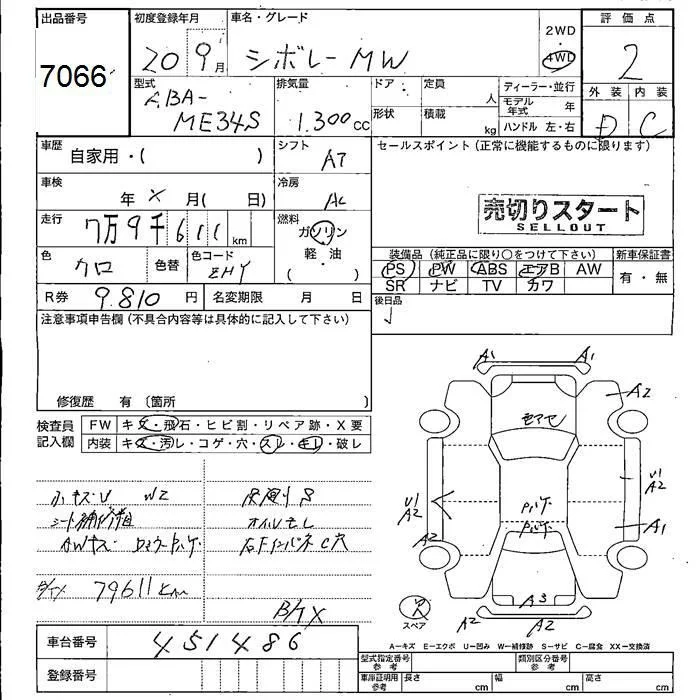 出品番号 初度登録年月 車名・グレード 評価点
7066 20 9月 シボレーMW 2WD 4WD 2
型式 排気量 ドア 定員 人 ディーラー・並行 外装 内装
ABA- ME34S 1.300cc 形状 積載 kg モデル年式 年 D C
ハンドル 左・右
車歴 シフト セールスポイント(正常に機能するものに限ります)
自家用・( ) AT
車検 冷房
年 × 月( 日) AC
売切りスタート
SELLOUT
走行 燃料
7万9千611km ガソリン
軽・油
( )
装備品(純正品に限り○をつけて下さい) 新車保証書
PS PW ABS エアB AW 有・無
SR ナビ TV カワ
色 クロ 色替 色コード ZHY
後日品
R券 9.810円 名変期限 月 日
注意事項申告欄(不具合内容等は具体的に記入して下さい)
修復歴 有〔箇所 〕
検査員記入欄 FW キズ・飛石・ヒビ割・リペア跡・X要
内装 キズ・汚レ・コゲ・穴・スレ・キレ・破レ
A1 A1
A2
U1
A2
U1
A2
A1
A2
W2
オイルモレ
79611km
スペア
A3
A2 A2
車台番号 451486
登録番号
A-キズ E-エクボ U-凹み W-補修跡 S-サビ C-腐食 XX-交換済
型式指定番号 参考 類別区分番号 参考
車庫証明用 参考 長さ cm 幅 cm 高さ cm